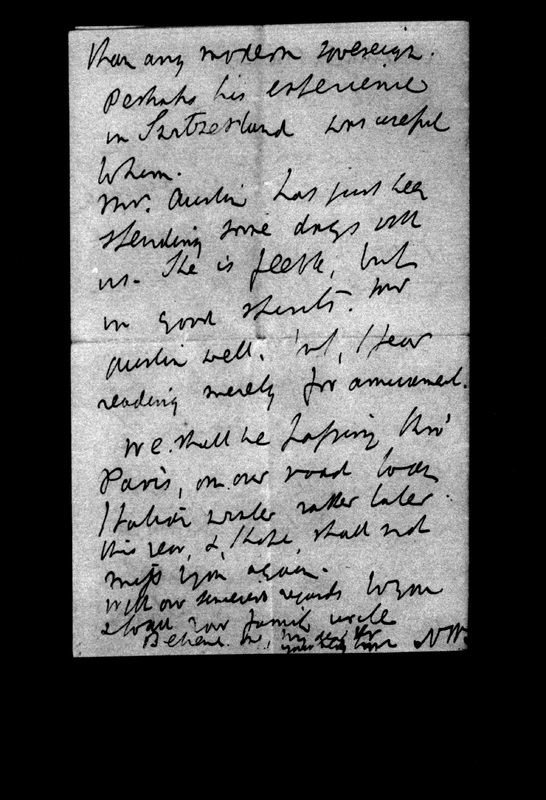 than any modern sovereign.
Perhaps his experience
in Switzerland was useful
to him.
Mrs. Austin has just been
spending some days with
us. She is feeble, but
in good spirits. Mr
Austin well, but, I fear
reading merely for amusement.
We shall be passing thro'
Paris, on our road to an
Italian winter rather later
this year, &, I hope, shall not
miss you again.
With our sincerest regards to you
& to all your family circle
Believe me, my dear
yours truly